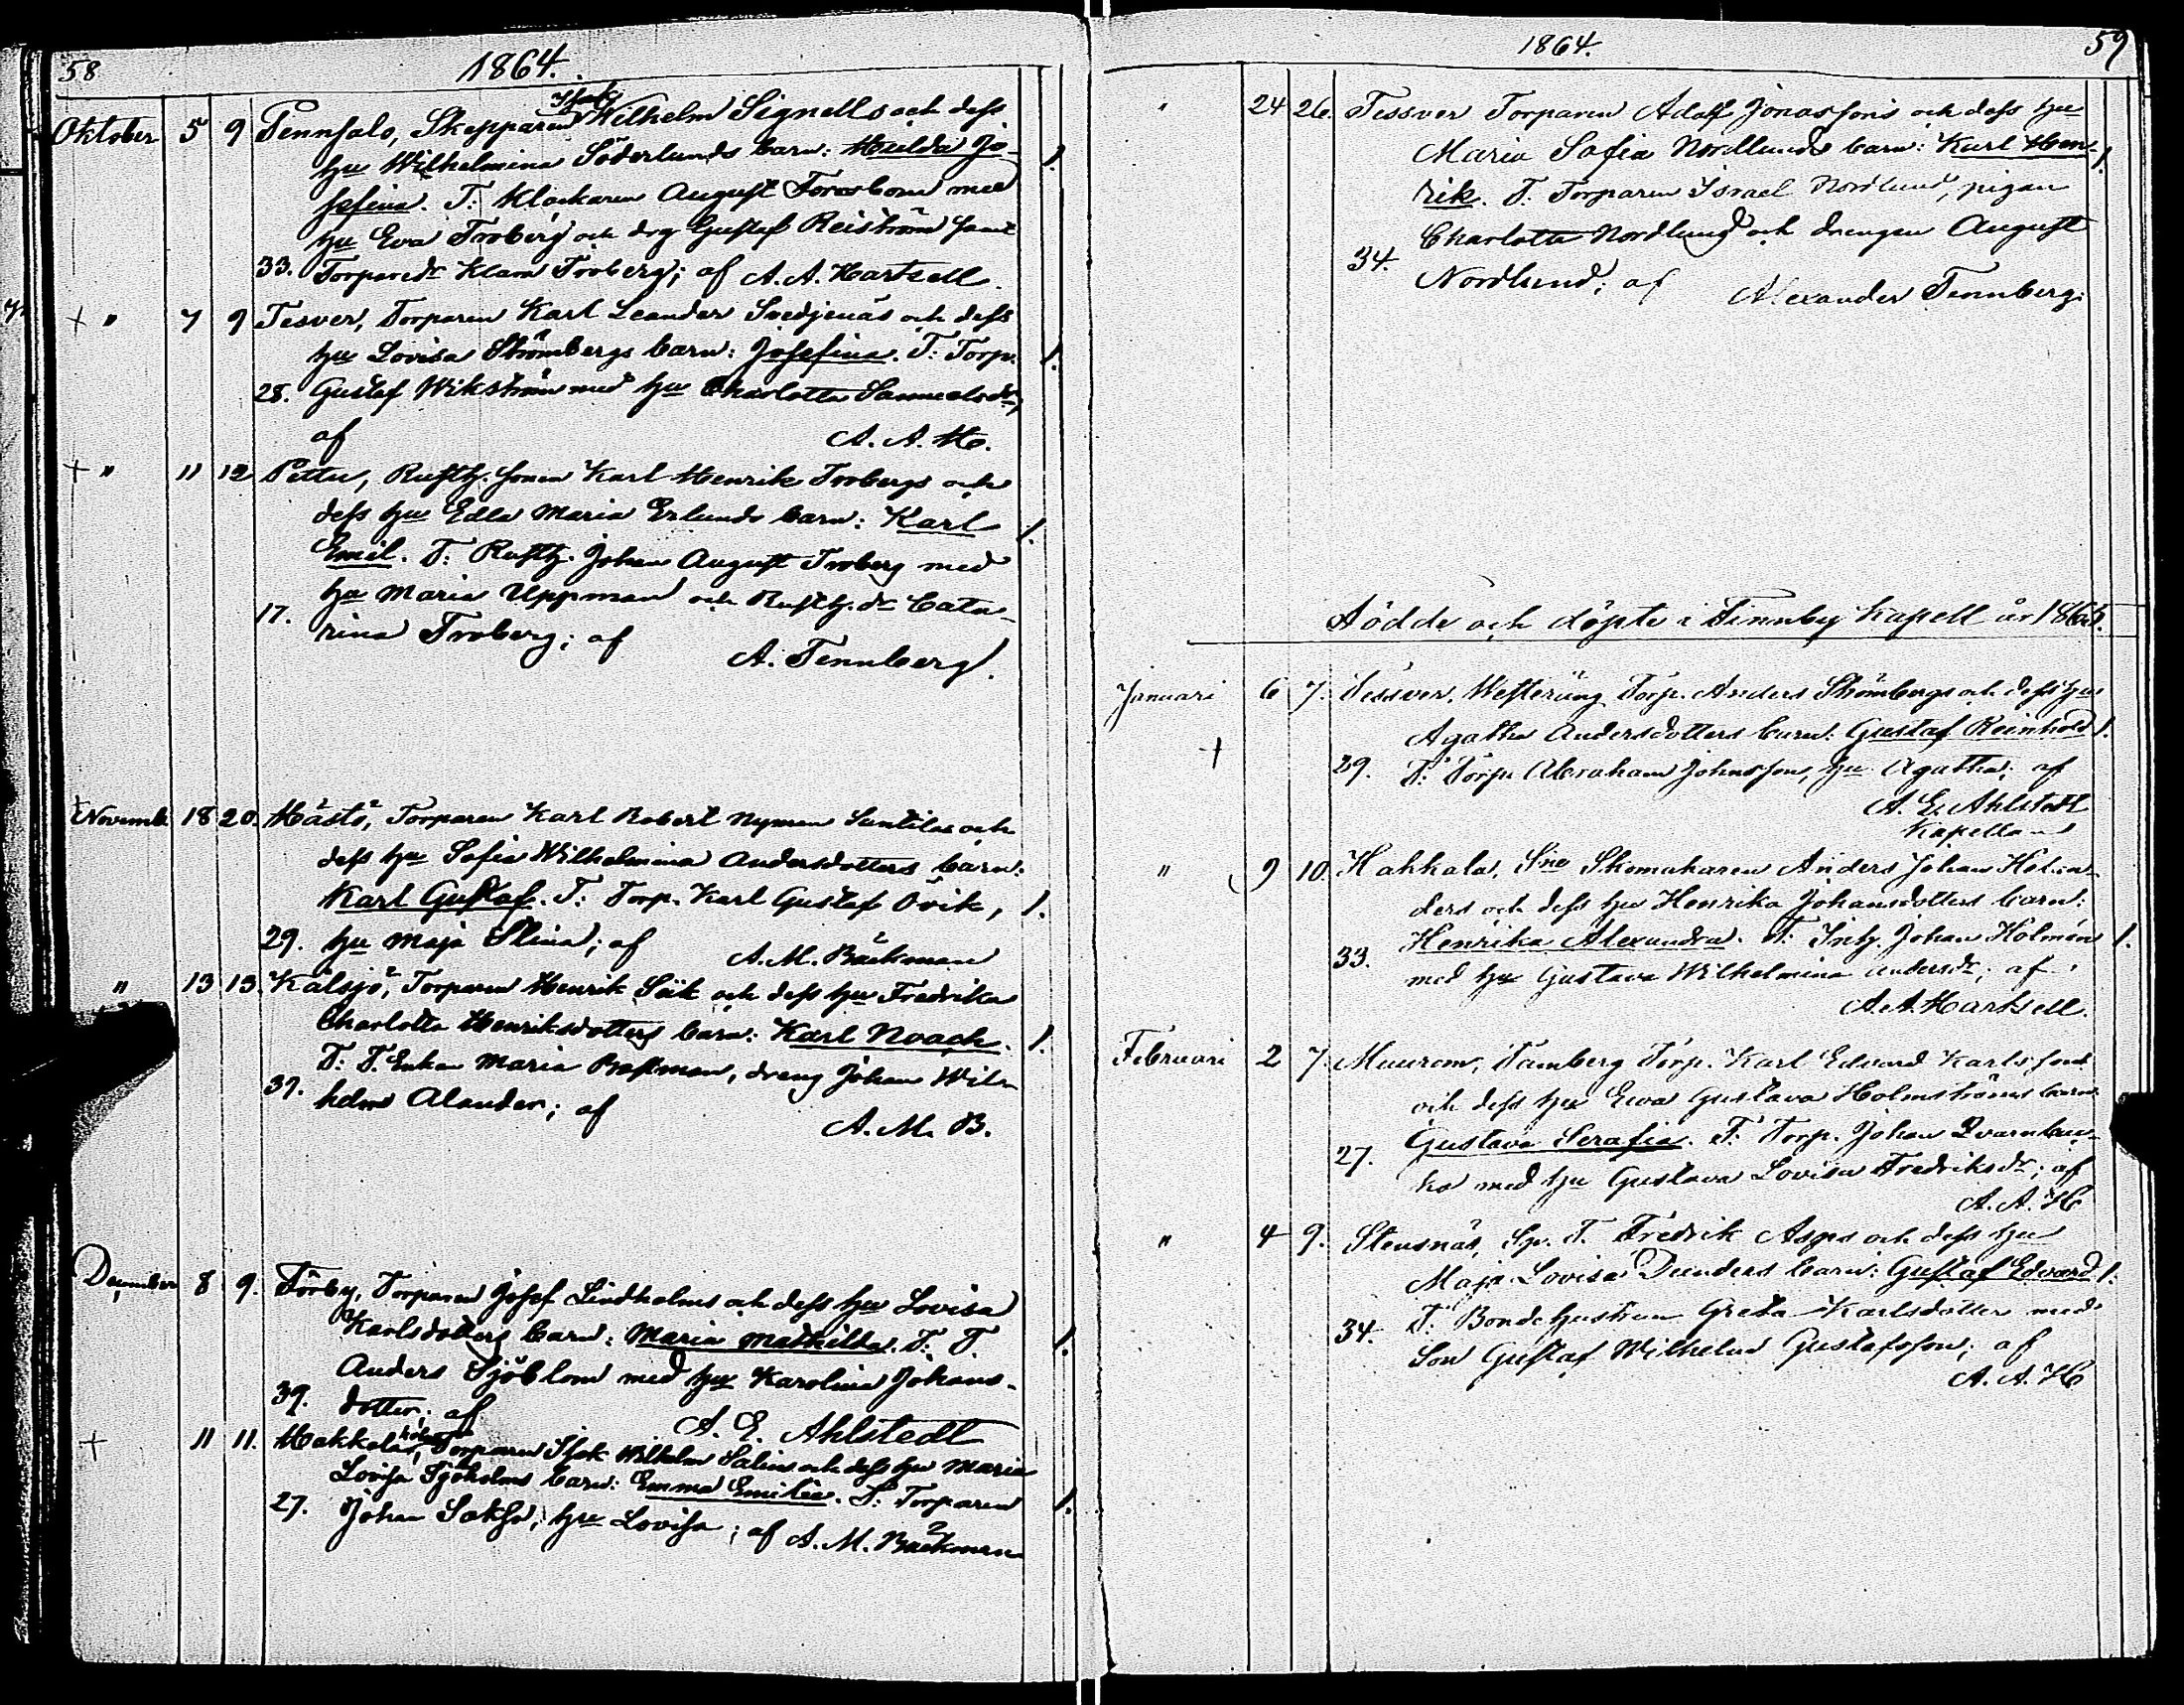 58 1864.
Isak
Oktober 5 9 Pennsalo, Skepparen Wilhelm Signells och dess
hu Wilhelmina Söderlunds barn: Hulda Jo- 1.
sefina. T: Klockaren August Forsbom med
hu Eva Froberg och drg Gustaf Reiström samt
33. Torparedr Klara Froberg; af A. A. Hartsell.
+ " 7 9 Tesver, Torparen Karl Leander Svedjenäs och dess
hu Lovisa Strömbergs barn: Josefina. T: Torp. 1.
28. Gustaf Wikström med hu Charlotta Samuelsdr,
af A. A. H.
+ " 11 12 Pettu, Rusth. sonen Karl Henrik Frobergs och
dess hu Edla Maria Erlunds barn: Karl 1.
Emil. T: Rusth. Johan August Froberg med
hu Maria Uppman och Rusth. dr Cata-
17. rina Froberg; af
A. Tennberg.
Novemb. 18 20. Hästö, Torparen Karl Robert Nyman Santilas och
dess hu Sofia Wilhelmina Andersdotters barn:
Karl Gustaf. T: Torp. Karl Gustaf Övik, 1.
29. hu Maja Stina; af A. M. Bäckman
" 13 13. Kålsjö, Torparen Henrik Säk och dess hu Fredrika
Charlotta Henriksdotters barn: Karl Noach. 1.
T: T. Enkan Maria Bosman, dreng Johan Wil-
37. helm Alander; af
A. M. B.
December 8 9. Förby, Torparen Josef Lindholms och dess hu Lovisa
Karlsdotters barn: Maria Mathilda. T: T. 1.
Anders Sjöblom med hu Karolina Johans-
39. dotter; af A. E. Ahlstedt
+ 11 11. Hakkala, Torparen Isak Wilhelm Salins och dess hu Maria
Lovisa Sjöholms barn: Emma Emilia. T: Torparen 1.
27. Johan Saksa, hu Lovisa; af A. M. Bäckman
1864. 59
" 24 26. Tessver Torparen Adolf Jonassons och dess hu
Maria Sofia Nordlunds barn: Karl Hen- 1.
rik. T. Torparen Israel Nordlund, pigan
Charlotta Nordlund och drengen August
34. Nordlund; af Alexander Tennberg.
Födde och döpte i Finnby Kapell år 1864.
Januari 6 7. Tessver, Westeräng Torp. Anders Strömbergs och dess hu
+ Agatha Andersdotters barn: Gustaf Reinhold 1.
29. T: Torp. Abraham Johnsson, hu Agatha; af
A. E. Ahlstedt
Kapellan
" 9 10. Hakkala, Sne Skomakaren Anders Johan Helan-
ders och dess hu Henrika Johansdotters barn:
Henrika Alexandra. T: Inh. Johan Holmén 1.
33. med hu Gustava Wilhelmina Andersdr; af
A. A. Hartsell.
Februari 2 7. Muurom, Tamberg Torp. Karl Edvard Karlssons
och dess hu Eva Gustava Holmströms barn:
Gustava Serafia. T: Torp. Johan Qvarnbac-
27. ka med hu Gustava Lovisa Fredriksdr; af
A. A. H
" 4 9. Stensnäs, Sp. T. Fredrik Asps och dess hu
Maja Lovisa Dunders barn: Gustaf Edvard 1.
34. T: Bondehustrun Greta Karlsdotter med
Son Gustaf Wilhelm Gustafsson; af
A. A. H